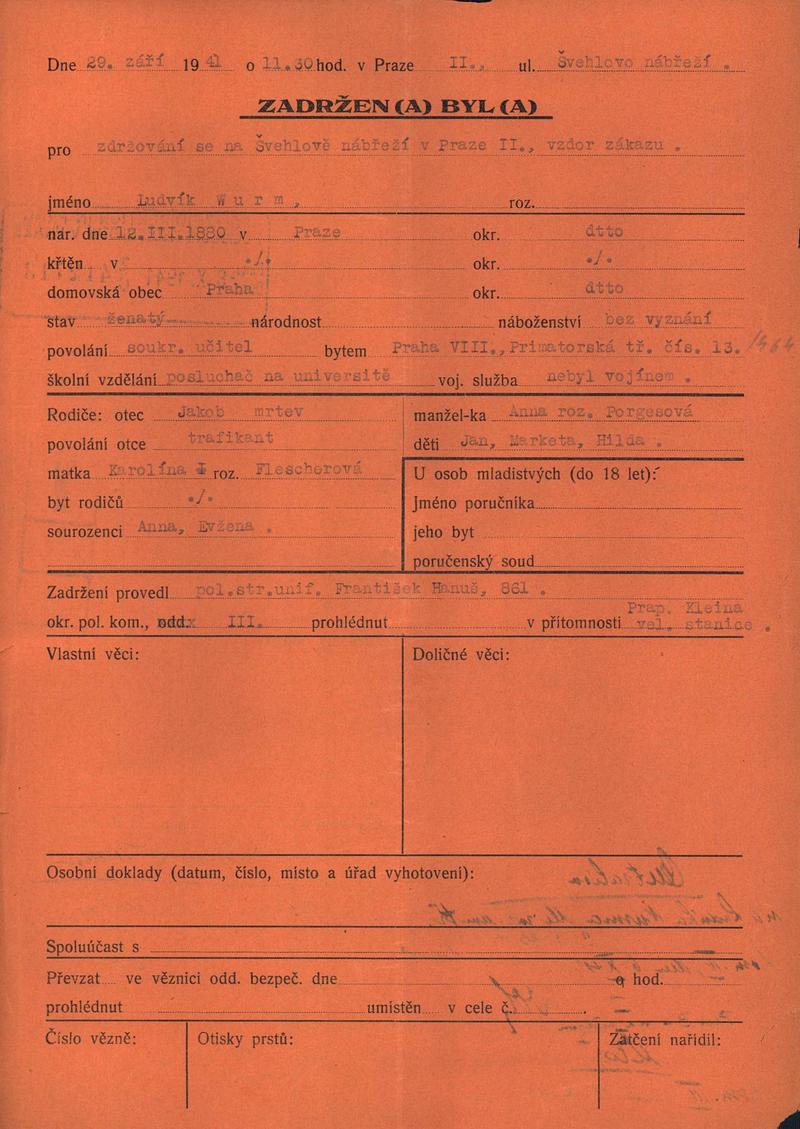 Dne 29. září 1941 o 11.30 hod. v Praze II., ul. Švehlovo nábřeží .
ZADRŽEN (A) BYL (A)
pro zdržování se na Švehlově nábřeží v Praze II., vzdor zákazu .
jméno Ludvík Wurm, roz.
nar. dne 12.III.1880 v Praze okr. dtto
křtěn v ./. okr. ./.
domovská obec Praha okr. dtto
stav ženatý národnost náboženství bez vyznání
povolání soukr. učitel bytem Praha VIII., Primatorská tř. čís. 13. /464
školní vzdělání posluchač na universitě voj. služba nebyl vojínem .
Rodiče: otec Jakob mrtev manžel-ka Anna roz. Porgesová
povolání otce trafikant děti Jan, Marketa, Hilda .
matka Karolína roz. Flescherová U osob mladistvých (do 18 let):
byt rodičů ./. Jméno poručníka
sourozenci Anna, Evžena . jeho byt
poručenský soud
Zadržení provedl pol.str.unif. František Hanuš, 861 .
okr. pol. kom., odd. III. prohlédnut v přítomnosti Prap. Kleina vel. stanice .
Vlastní věci: Doličné věci:
Osobní doklady (datum, číslo, místo a úřad vyhotovení):
Spoluúčast s
Převzat ve věznici odd. bezpeč. dne o hod.
prohlédnut umístěn v cele č. .
Číslo vězně: Otisky prstů: Zatčení nařídil: